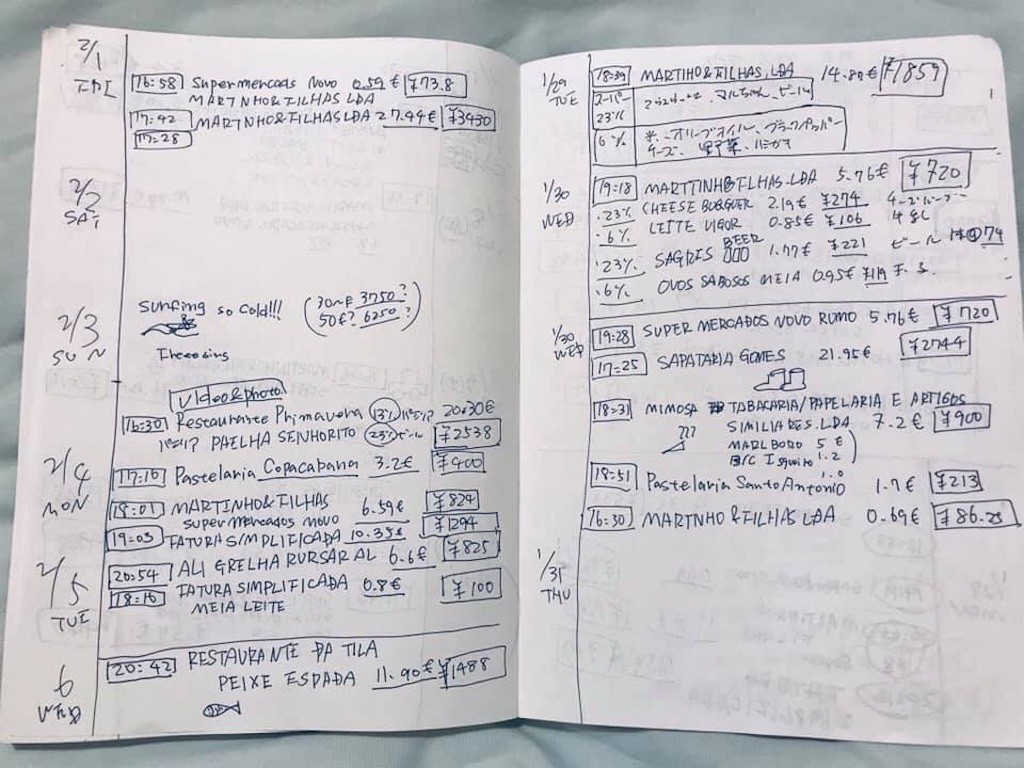 2/1
FRI
16:58 Supermercados Novo 0.59€ ¥73.8
MARTINHO&FILHAS LDA
17:42 MARTINHO&FILHAS LDA 27.44€ ¥3430
17:28
2/2
SAT
Surfing so cold!!! (30〜€ 3750?
50€? 6250?)
2/3
SUN
Freeesing
Video&photo
16:30 Restaurante Primavera 13% パエリア 20.30€
パエリア PAELHA SENHORITO 23% ビール ¥2538
2/4
MON
17:10 Pastelaria Copacabana 3.2€ ¥400
18:01 MARTINHO&FILHAS 6.59€ ¥824
Supermercados novo
19:03 FATURA SIMPLIFICADA 10.35€ ¥1294
2/5
TUE
20:54 ALI GRELHA RURSARAL 6.6€ ¥825
18:16 FATURA SIMPLIFICADA 0.8€ ¥100
MEIA LEITE
6
WED
20:42 RESTAURANTE DA TILA
PEIXE ESPADA 11.90€ ¥1488
1/29
TUE
18:39 MARTIHO&FILHAS, LDA 14.87€ ¥1859
スーパー
23% マルちゃん、ビール
6% 米、オリーブオイル、ブラックペッパー
チーズ、ハミガキ
1/30
WED
19:18 MARTTINHO&FILHAS.LDA 5.76€ ¥720
.23% CHEESE BURGUER 2.19€ ¥274 チーズバーガー
.6% LEITE VIGOR 0.85€ ¥106 牛乳
.23% SAGRES BEER 1.77€ ¥221 ビール 74
.6% OVOS SABOSOS MEIA 0.95€ ¥119
1/30
WED
19:28 SUPER MERCADOS NOVO RUMO 5.76€ ¥720
17:25 SAPATARIA GOMES 21.95€ ¥2744
18:31 MIMOSA TABACARIA/PAPELARIA E ARTIGOS
??? SIMILIARES.LDA 7.2€ ¥900
MARLBORO 5€
BIC Isqueiro 1.2
1.0
18:51 Pastelaria Santo Antonio 1.7€ ¥213
16:30 MARTINHO&FILHAS LDA 0.69€ ¥86.25
1/31
THU